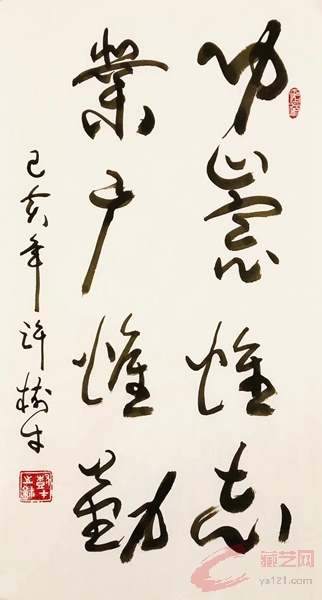 功崇惟志
業广惟勤
己亥年许樹
藏艺网
ys121.com